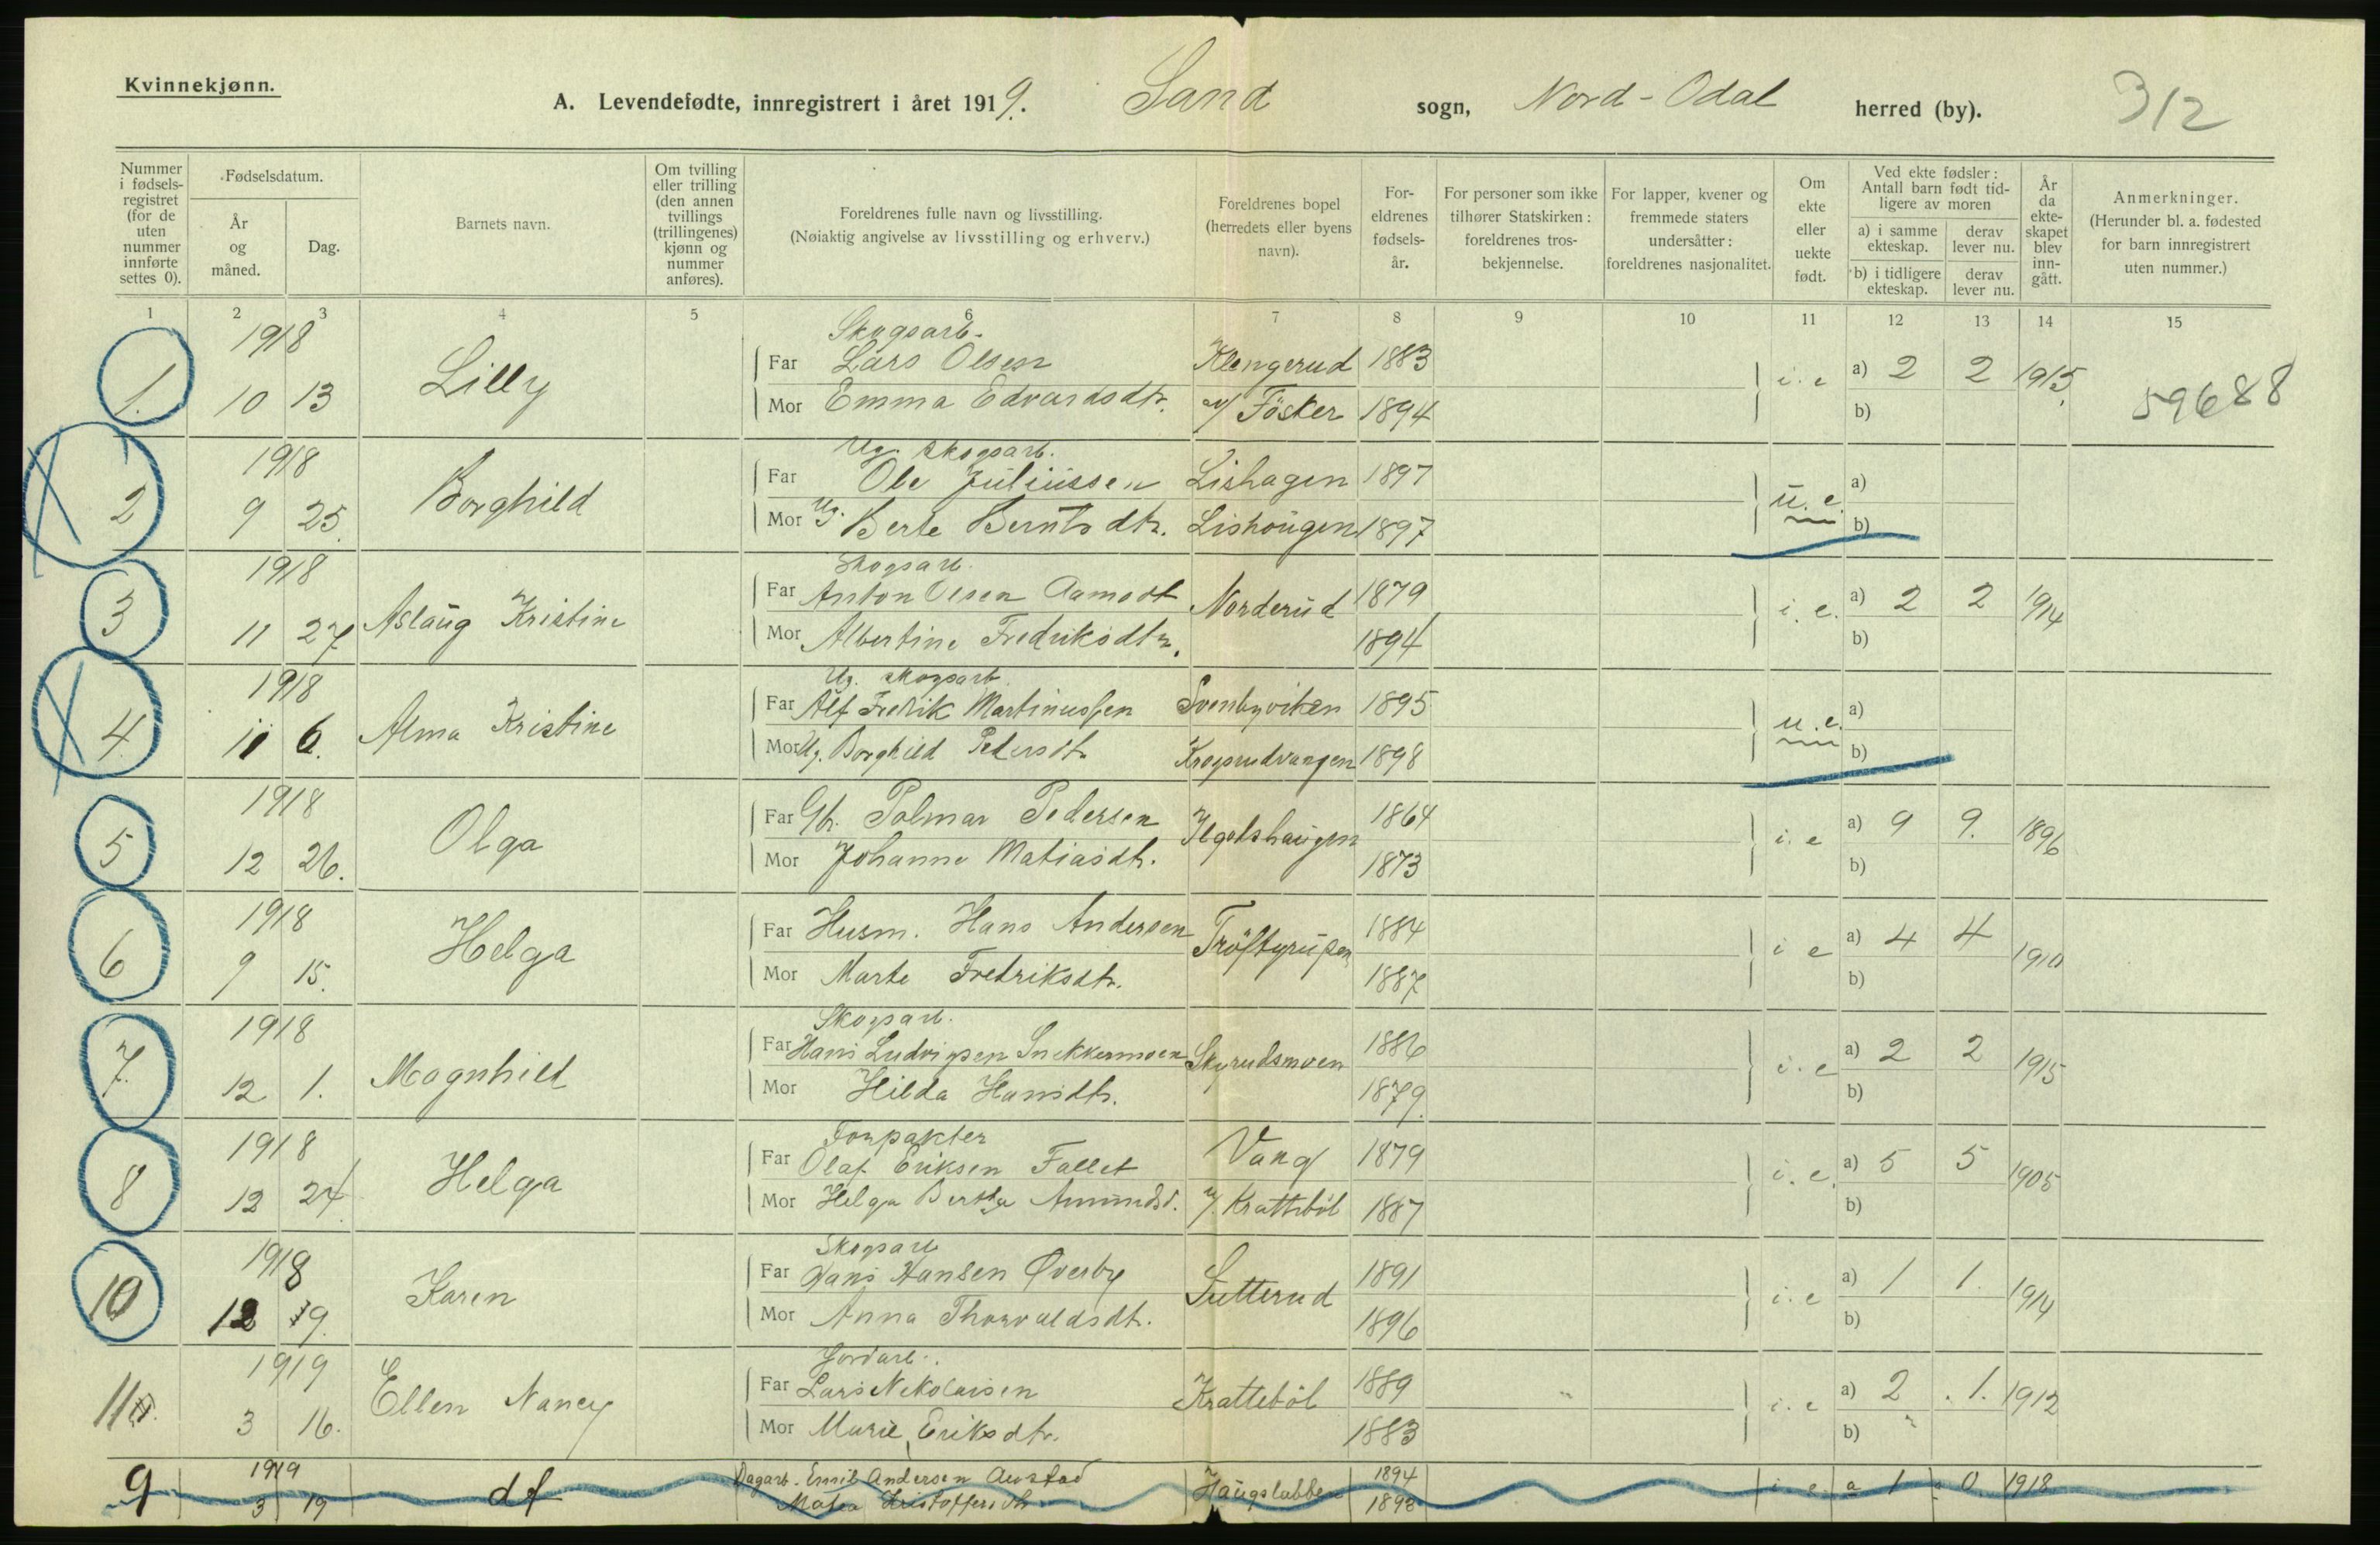 Kvinnekjønn.
A. Levendefødte, innregistrert i året 1919. Sand sogn, Nord-Odal herred (by). 312
Nummer i fødselsregistret (for de uten nummer innførte settes 0).
Fødselsdatum.
År og måned.
Dag.
Barnets navn.
Om tvilling eller trilling (den annen tvillings (trillingenes) kjønn og nummer anføres).
Foreldrenes fulle navn og livsstilling.
(Nøiaktig angivelse av livsstilling og erhverv.)
Foreldrenes bopel (herredets eller byens navn).
Foreldrenes fødselsår.
For personer som ikke tilhører Statskirken: foreldrenes trosbekjennelse.
For lapper, kvener og fremmede staters undersåtter: foreldrenes nasjonalitet.
Om ekte eller uekte født.
Ved ekte fødsler: Antall barn født tidligere av moren
a) i samme ekteskap.
derav lever nu.
b) i tidligere ekteskap.
derav lever nu.
År da ekteskapet blev inngått.
Anmerkninger.
(Herunder bl. a. fødested for barn innregistrert uten nummer.)
1 2 3 4 5 6 7 8 9 10 11 12 13 14 15
1918 Skogsarb.
1. 10 13 Lilly Far Lars Olsen Klengerud 1883 i. e a) 2 2 1915 59688
Mor Emma Edvardsdtr. v/ Fösker 1894 b)
1918 Ug. skogsarb.
2 9 25. Borghild Far Ole Juliussen Lishagen 1897 u. e. a)
Mor Ug. Berte Berntsdtr. Lishougen 1897 b)
1918 Skogsarb.
3 11 27 Aslaug Kristine Far Anton Olsen Aamodt Norderud 1879 i. e. a) 2 2 1914
Mor Albertine Fredriksdtr. 1894 b)
1918 Ug. skogsarb.
4. 11 6. Alma Kristine Far Alf Fredrik Martinussen Svenbyviken 1895 u. e. a)
Mor Ug. Borghild Pedersdtr. Krogsrudvangen 1898 b)
1918
5 12 26. Olga Far Gbr. Palmar Pedersen 1864 i. e a) 9 9. 1896
Mor Johanne Matiasdtr. 1873 b)
1918
6 9 15. Helga Far Husm. Hans Andersen 1884 i e a) 4 4 1910
Mor Marte Fredriksdtr. 1887 b)
1918 Skogsarb.
7. 12 1. Magnhild Far Hans Ludvigsen Snekkermoen Skyrudsmoen 1886 i. e a) 2 2 1915
Mor Hilda Hansdtr. 1879. b)
1918 Forpakter
8 12 24. Helga Far Olaf Eriksen Fallet Vang 1879 i. e. a) 5 5 1905
Mor Helga Bertha Amundsd. v/. Kratteböl 1887 b)
1918 Skogsarb
10 12 19. Karen Far Hans Hansen Øverby Sutterud 1891 i. e a) 1 1. 1914
Mor Anna Thorvaldsdtr. 1896 b)
1919 Jordarb.
11. 3 16. Ellen Nancy Far Lars Nikolaisen Kratteböl 1889 " i. e a) 2 1. 1912
Mor Marie Eriksdtr. 1883 b) "
9 1919 df Dagarb. Emil Andersen Austad 1894 i e a 1 0 1918
3 19 Matea Kristoffersdtr 1892